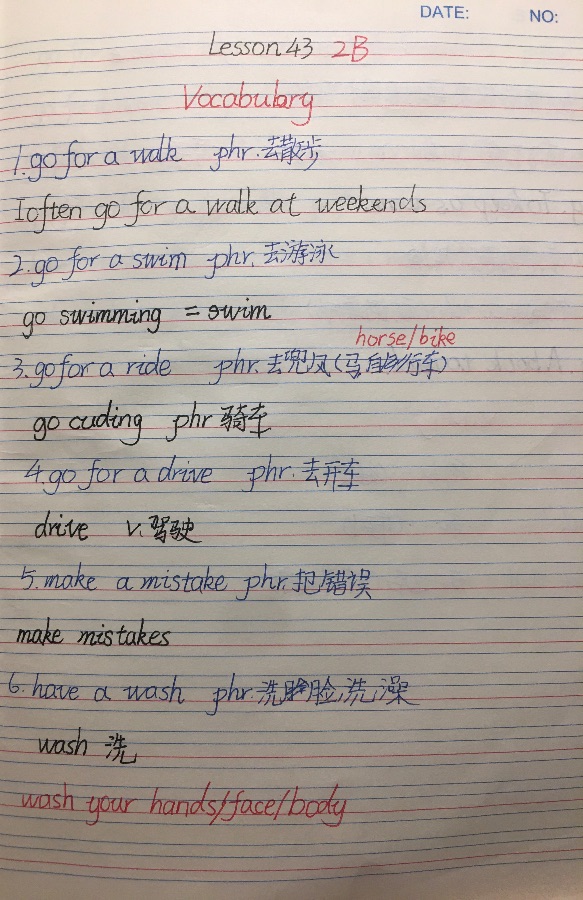 DATE: NO:
Lesson 43 2B
Vocabulary
1. go for a walk phr. 去散步
I often go for a walk at weekends
2. go for a swim phr. 去游泳
go swimming = swim
horse/bike
3. go for a ride phr. 去兜风(马自行车)
go cuding phr 骑车
4. go for a drive phr. 去开车
drive v. 驾驶
5. make a mistake phr. 犯错误
make mistakes
6. have a wash phr 洗脸,洗澡
wash 洗
wash your hands/face/body